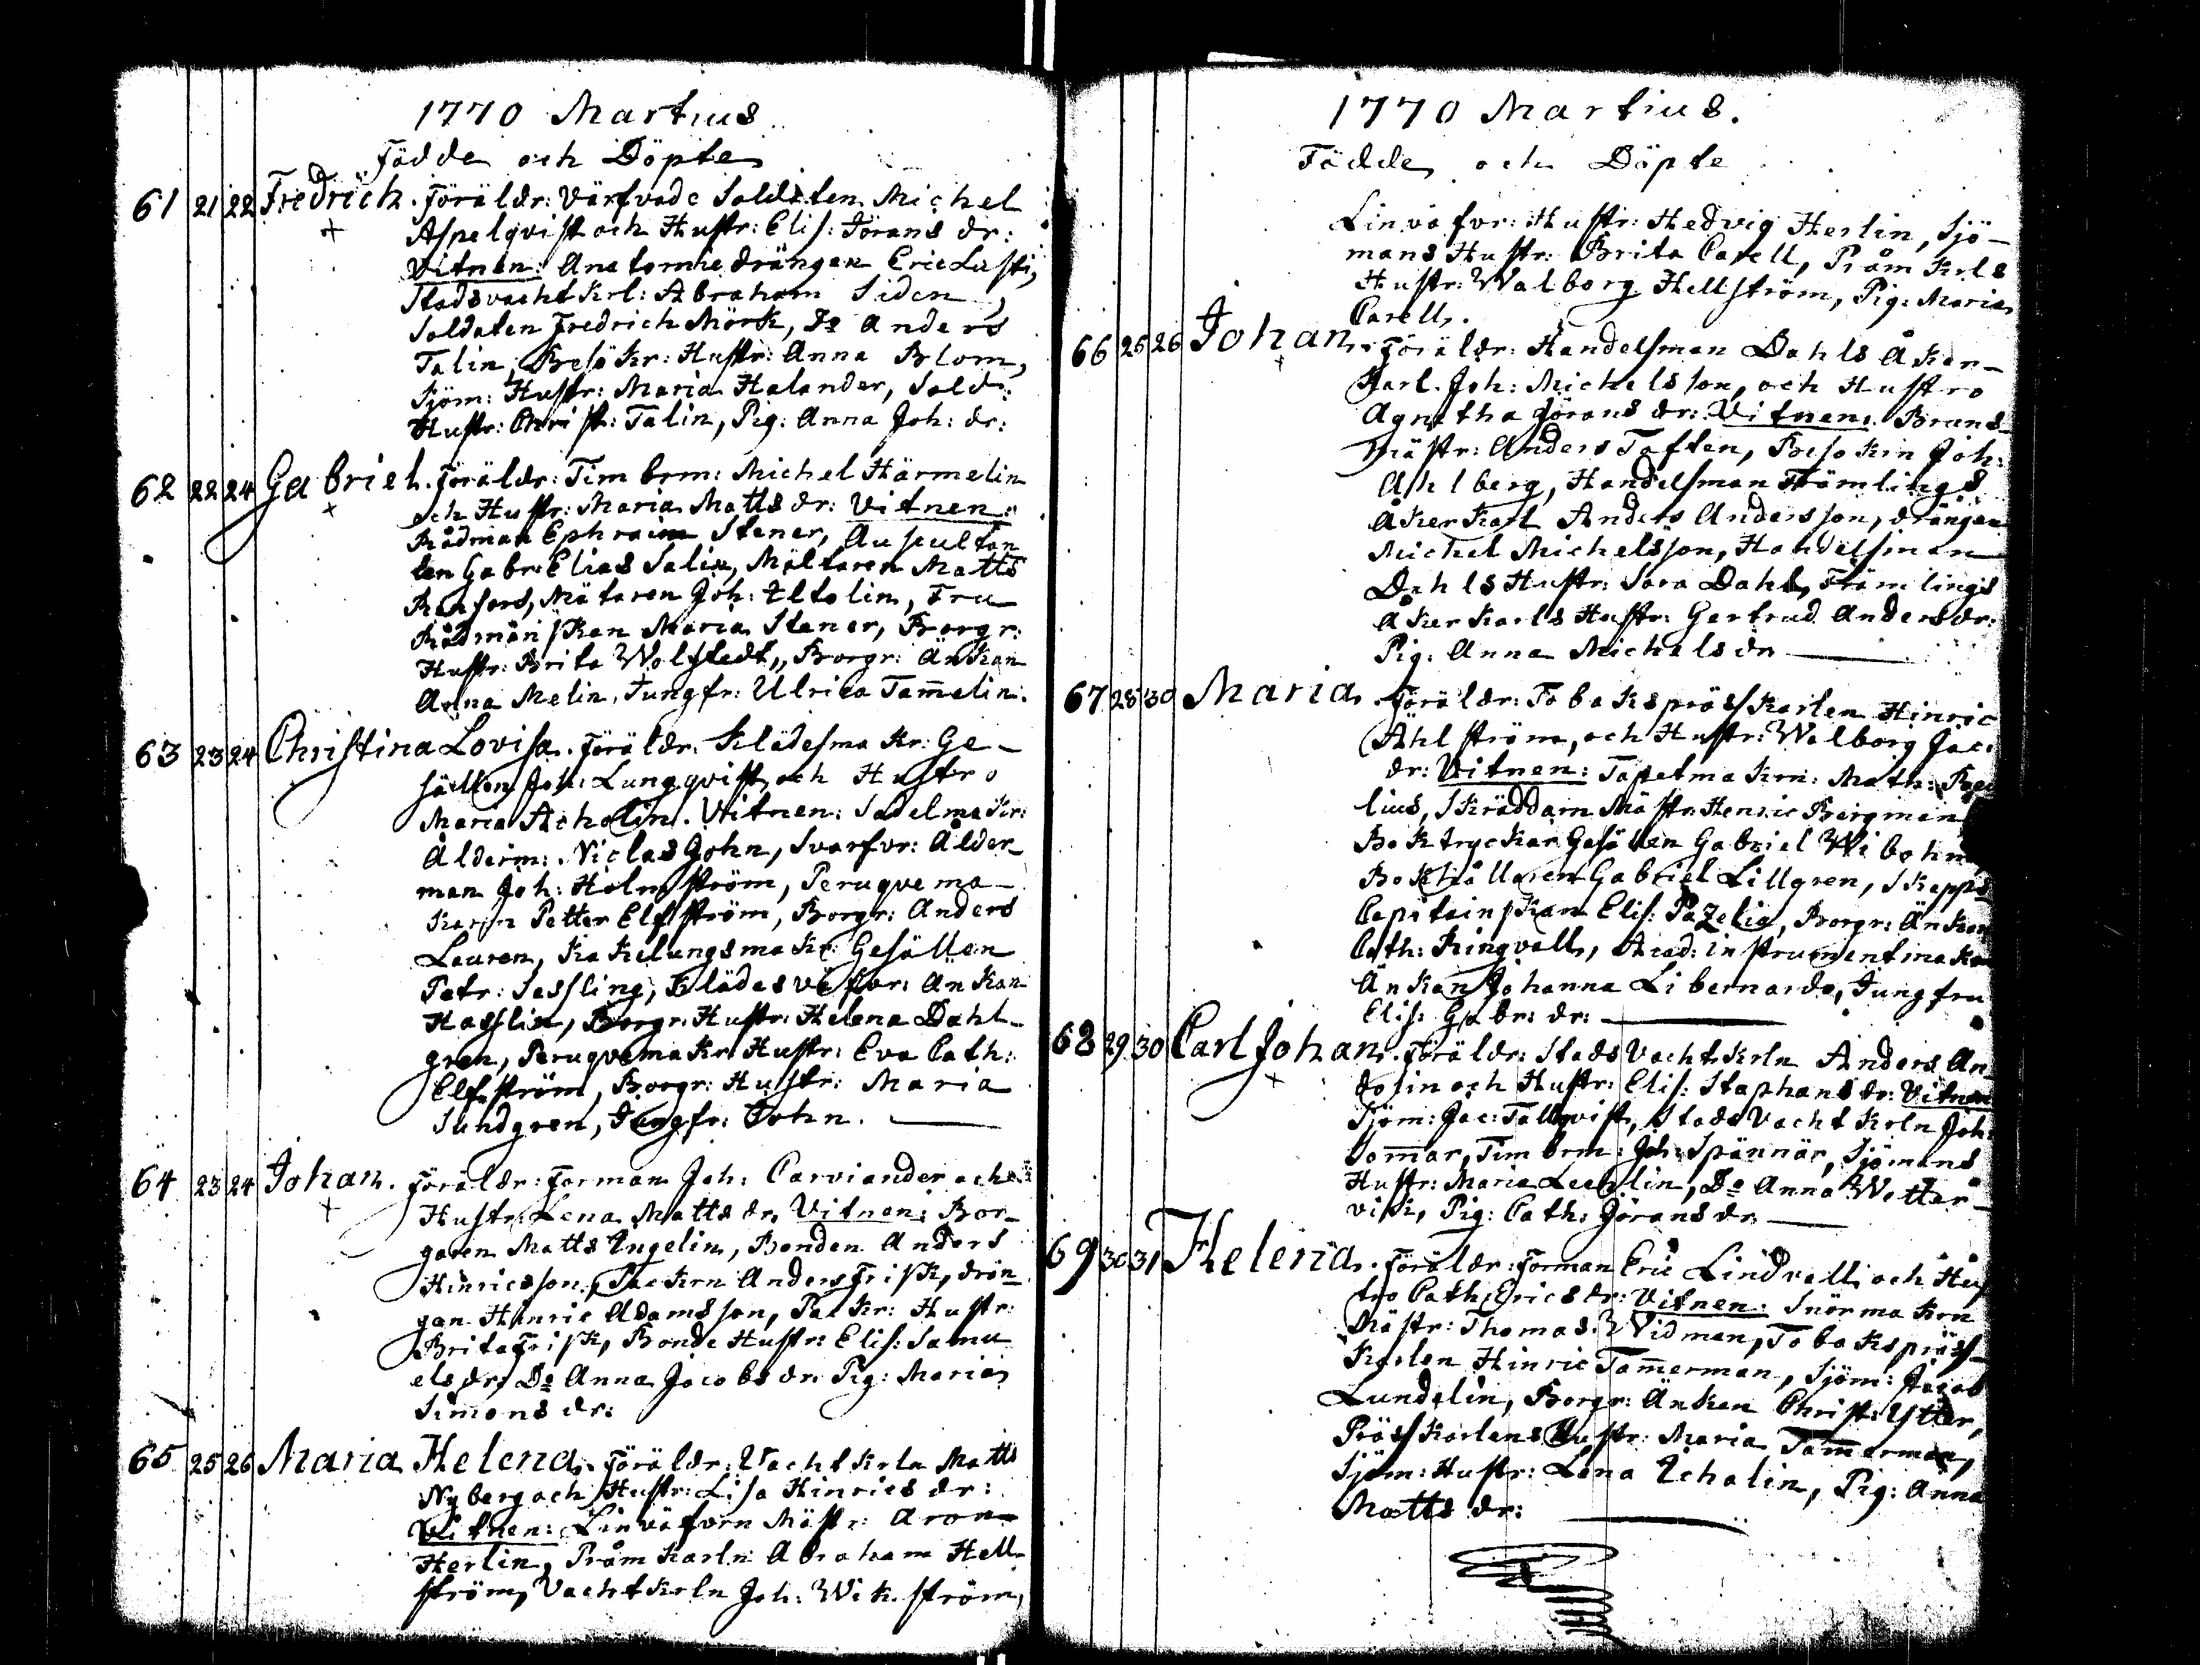 1770 Martius
Födde och Döpte
61 21 22 Fredrich. Föräldr: Värfvade Soldaten Michel
Aspelqvist och Hustr: Elis: Jörans dr:
Vitnen: Anatomiedrängen Eric Lusti,
Stadsvacht Krl: Abraham Siden,
Soldaten Fredrich Mörk, Do Anders
Talin, Besökr: Hustr: Anna Blom,
Sjöm: Hustr: Maria Halander, Sold:
Hustr: Christ: Talin, Pig: Anna Joh: dr:
62 22 24 Gabriel. Föräldr: Timbrm: Michel Härmelin
och Hustr: Maria Matts dr: Vitnen:
Rådman Ephraim Stener, Auscultan
ten Gabr: Elias Salin, Mältaren Matts
Renfors, Mätaren Joh: Eltolin, Fru
Rådmänskan Maria Stener, Borgr:
Hustr: Brita Wolstedt, Borgr: Änkan
Anna Melin, Jungfr: Ulrica Tam̄elin.
63 23 24 Christina Lovisa. Föräldr: Klädesmakr: Ge-
sällen Joh: Lungqvist och Hustro
Maria Acholin. Vitnen: Sadelmakr:
Ålderm: Niclas John, Svarfvr: Ålder-
man Joh: Holmström, Peruqvema-
karn Petter Elfström, Borgr: Anders
Lauren, Kakelungsmakr: Gesällen
Petr: Sessling, Klädesväfvr: Änkan
Hasslin, Borgr: Hustr: Helena Dahl-
gren, Peruqvemakr: Hustr: Eva Cath:
Elfström, Borgr: Hustr: Maria
Sundgren, Jungfr: John.
64 23 24 Johan. Föräldr: Forman Joh: Carviander och
Hustr: Lena Matts dr. Vitnen: Bor-
garen Matts Engelin, Bonden Anders
Hinricsson, Packrn Anders Frisk, drän
gen Hinric Adamsson, Packr: Hustr:
Brita Frisk, Bonde Hustr: Elis: Samu
els dr, Do Anna Jacobs dr. Pig: Maria
Simons dr:
65 25 26 Maria Helena. Föräldr: Vacht Krln Matts
Nyberg och Hustr: Lisa Hinrics dr:
Vitnen: Linväfvrn Mästr: Aron
Herlin, Pråmkarln Abraham Hell-
ström, Vacht Krln Joh: Wikström,
1770 Martius.
Födde och Döpte
Linväfvr: Hustr: Hedvig Herlin, Sjö-
mans Hustr: Brita Carell, Pråm Krls
Hustr: Walborg Hellström, Pig: Maria
Carell.
66 25 26 Johan. Föräldr: Handelsman Dahls Åker-
Karl Joh: Michelsson, och Hustro
Agnetha Jörans dr: Vitnen: Brand-
mästr: Anders Toften, Besökrn Joh:
Ahlberg, Handelsman Främlings
Åkerkarl Anders Andersson, drängen
Michel Michelsson, Handelsman
Dahls Hustr: Sara Dahl, Främlings
Åkerkarls Hustr: Gertrud Anders dr:
Pig: Anna Michels dr.
67 28 30 Maria. Föräldr: Tobakspräss karlen Hinric
Ahlström, och Hustr: Walborg Jac:
dr: Vitnen: Tapetmakrn: Math:
lius, Skräddarn Mästr: Henric Bergman
Boktryckar Gesällen Gabriel Wibohm
Bokhållaren Gabriel Lillgren, Skepps
Capitainskan Elis: Pazelia, Borgr: Änkan
Cath: Ringvall, Acad: instrumentmakr
Änkan Johanna Libernarda, Jungfru
Elis: Gabr: dr:
68 29 30 Carl Johan. Föräldr: Stads Vacht Krln Anders An
dolin och Hustr: Elis: Staphans dr: Vitnen
Sjöm: Jac: Tallqvist, Stads Vacht Krln Joh:
Som̄ar, Timbrm: Joh: Spännär, Sjömans
Hustr: Maria Lechlin, Do Anna Wetter-
vik, Pig: Cath: Jörans dr.
69 30 31 Helena. Föräldr: Forman Eric Lindvall och Hus
tro Cath: Erics dr: Vitnen: Snörmakrn
Mästr: Thomas Widman, Tobakspräss-
karlen Hinric Tam̄erman, Sjöm: Jacob
Lundelin, Borgr: Änkan Christ: Ytter,
Prässkarlens Hustr: Maria Tam̄erman,
Sjöm: Hustr: Lena Echolin, Pig: Anna
Matts dr: